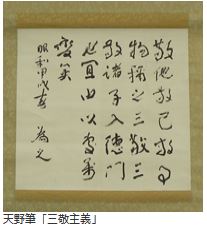 敬他敬己敬事
物称之三敬三
敬諸子入徳門
必宜由以處萬
變矣
昭和甲戌春 為之
天野筆「三敬主義」